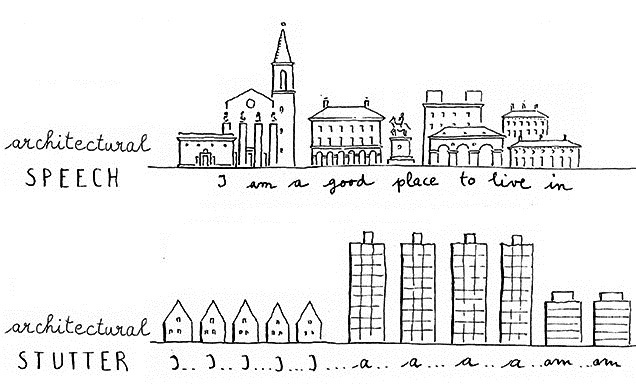 architectural
SPEECH
I am a good place to live in
architectural
STUTTER
I.. I.. I...I...I ....a... a... a... a...am...am